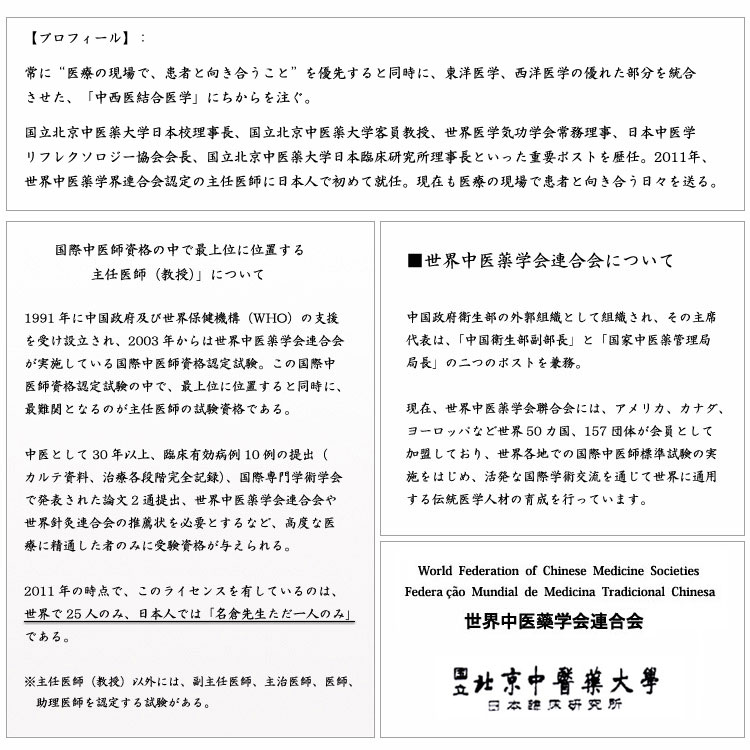 【プロフィール】：
常に“医療の現場で、患者と向き合うこと”を優先すると同時に、東洋医学、西洋医学の優れた部分を統合
させた、「中西医結合医学」にちからを注ぐ。
国立北京中医薬大学日本校理事長、国立北京中医薬大学客員教授、世界医学気功学会常務理事、日本中医学
リフレクソロジー協会会長、国立北京中医薬大学日本臨床研究所理事長といった重要ポストを歴任。2011年、
世界中医薬学界連合会認定の主任医師に日本人で初めて就任。現在も医療の現場で患者と向き合う日々を送る。
国際中医師資格の中で最上位に位置する
主任医師（教授）」について
1991年に中国政府及び世界保健機構（WHO）の支援
を受け設立され、2003年からは世界中医薬学会連合会
が実施している国際中医師資格認定試験。この国際中
医師資格認定試験の中で、最上位に位置すると同時に、
最難関となるのが主任医師の試験資格である。
中医として30年以上、臨床有効病例10例の提出（
カルテ資料、治療各段階完全記録）、国際専門学術学会
で発表された論文2通提出、世界中医薬学会連合会や
世界針灸連合会の推薦状を必要とするなど、高度な医
療に精通した者のみに受験資格が与えられる。
2011年の時点で、このライセンスを有しているのは、
世界で25人のみ、日本人では「名倉先生ただ一人のみ」
である。
※主任医師（教授）以外には、副主任医師、主治医師、医師、
助理医師を認定する試験がある。
■世界中医薬学会連合会について
中国政府衛生部の外郭組織として組織され、その主席
代表は、「中国衛生部副部長」と「国家中医薬管理局
局長」の二つのポストを兼務。
現在、世界中医薬学会聯合会には、アメリカ、カナダ、
ヨーロッパなど世界50カ国、157団体が会員として
加盟しており、世界各地での国際中医師標準試験の実
施をはじめ、活発な国際学術交流を通じて世界に通用
する伝統医学人材の育成を行っています。
World Federation of Chinese Medicine Societies
Federa ção Mundial de Medicina Tradicional Chinesa
世界中医藥学会連合会
国立北京中醫藥大學
日本臨床研究所